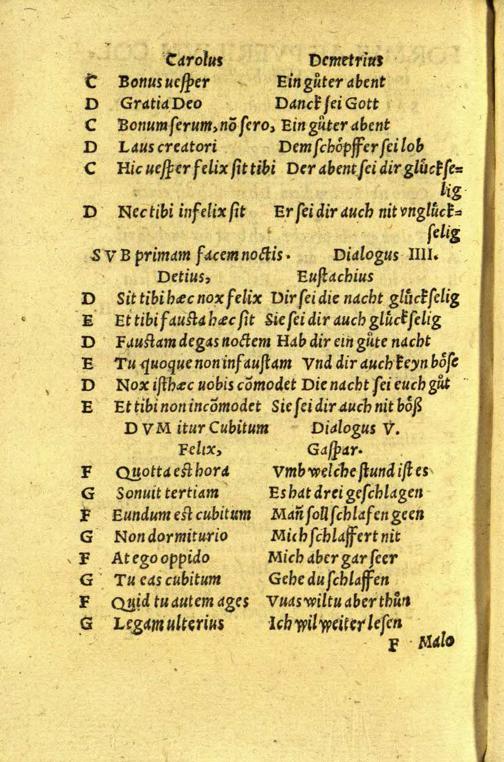 Carolus Demetrius
C Bonus uesper Ein gůter abent
D Gratia Deo Danck sei Gott
C Bonum serum, nõ sero, Ein gůter abent
D Laus creatori Dem schöpffer sei lob
C Hic uesper felix sit tibi Der abent sei dir glückse=
lig
D Nec tibi infelix sit Er sei dir auch nit vnglück=
selig
SVB primam facem noctis. Dialogus IIII.
Detius, Eustachius
D Sit tibi hæc nox felix Dir sei die nacht glückselig
E Et tibi fausta hæc sit Sie sei dir auch glückselig
D Faustam degas noctem Hab dir ein gůte nacht
E Tu quoque non infaustam Vnd dir auch keyn böse
D Nox isthæc uobis cõmodet Die nacht sei euch gůt
E Et tibi non incõmodet Sie sei dir auch nit böß
DVM itur Cubitum Dialogus V.
Felix, Gaspar.
F Quotta est hora Vmb welche stund ist es
G Sonuit tertiam Es hat drei geschlagen
F Eundum est cubitum Mañ soll schlafen geen
G Non dormiturio Mich schlaffert nit
F At ego oppido Mich aber gar seer
G Tu eas cubitum Gehe du schlaffen
F Quid tu autem ages Vuas wiltu aber thůn
G Legam ulterius Ich wil weiter lesen
F Malo